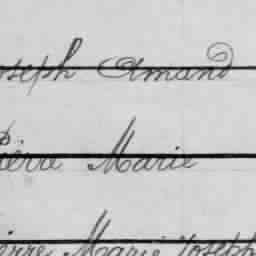 oseph Amand
Pierre Marie
ierre Marie Joseph